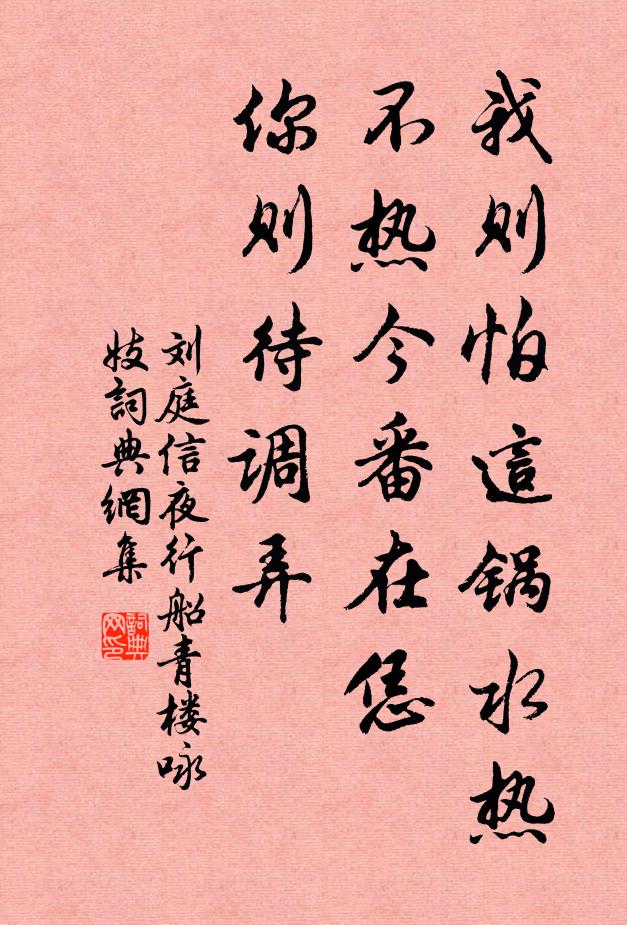 我则怕這锅水热
不热今番在恁
你则待调弄
刘庭信夜行船青楼咏
妓詞典網集
詞典网印